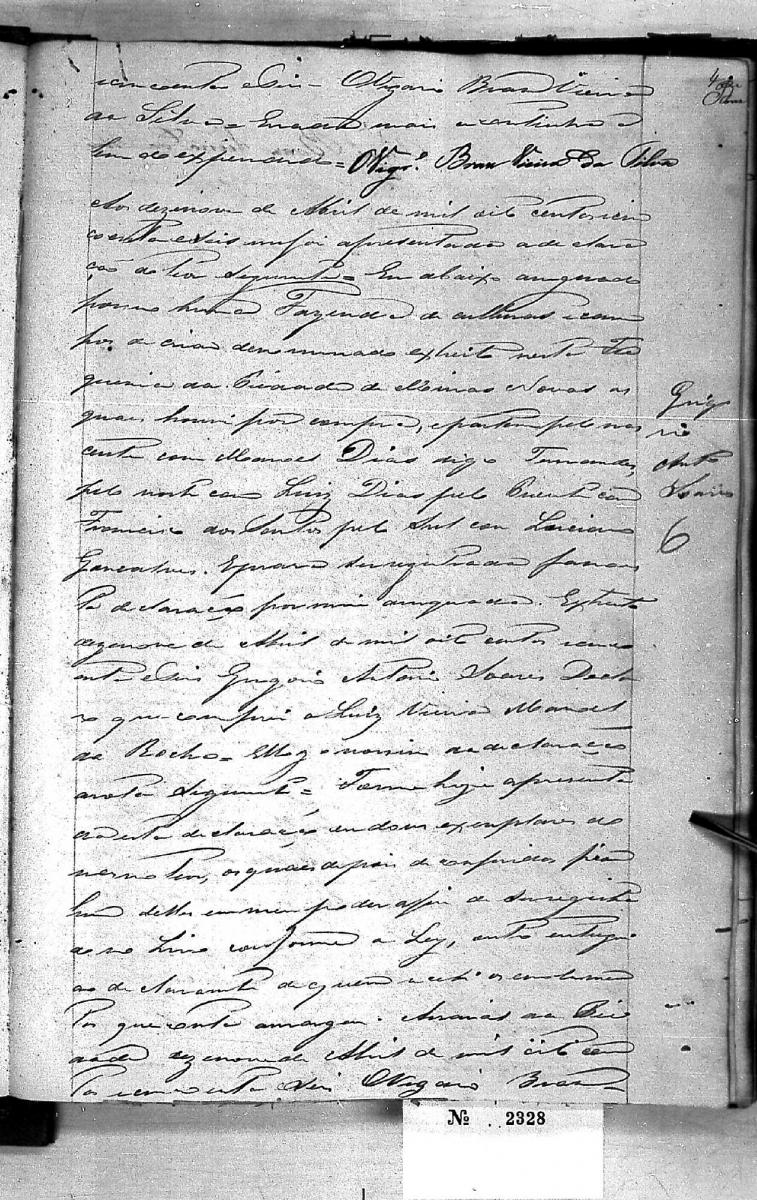 coenta e Seis - O Vigario Bras Vieira
da Silva = E nada mais se continha
hum do expendido = O Vigr.º Bras Vieira da Silva
Aos dezenove de Abril de mil oito centos e cin
coenta e Seis me foi apresentada a declara
ção do teor Seguinte = Eu abaixo assignado
possuo huma Fazenda de culturas e cam
pos de criar denominada
nesta Fre
guesia da Piedade de Minas Novas as
quaes houve por compra, e partem pelo nas
cente com Manoel Dias digo Fernandes,
pelo norte com Luiz Dias pelo Poente com
Francisco dos Santos pelo Sul com Luciano
Gonçalves. E para ser registrada faço es
ta declaração por mim assignada.
dezenove de Abril de mil oito centos e cinco
enta e Seis Gregorio Antonio Soares Decla
ro que comprei a Luiz Vieira Manoel
da Rocha =
na declaração
a nota Seguinte = Foi-me hoje apresenta
da esta declaração em dous exemplares do
mesmo teor, os quaes depois de conferidos fica
hum delles em meu poder afim de Ser registra
do no Livro conforme a Ley, outro entregue
ao declarante de quem recebi os emolumen
tos que consta a margem.
da Pie
dade dezenove de Abril de mil oito cen
tos e cincoenta e Seis O Vigario Bras
Grigo
rio
Anto
Soares
6
Nº 2328